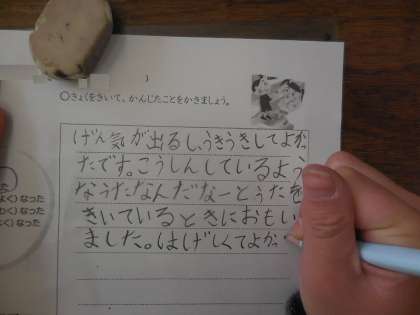 ○きょくをきいて、かんじたことをかきましょう。
げん気が出るし、うきうきしてよか
たです。こうしんしているよう
なうただなんだなーとうたを
きいているときにおもい
ました。はげしくてよか
よく)なった
わく)なった
く)なった